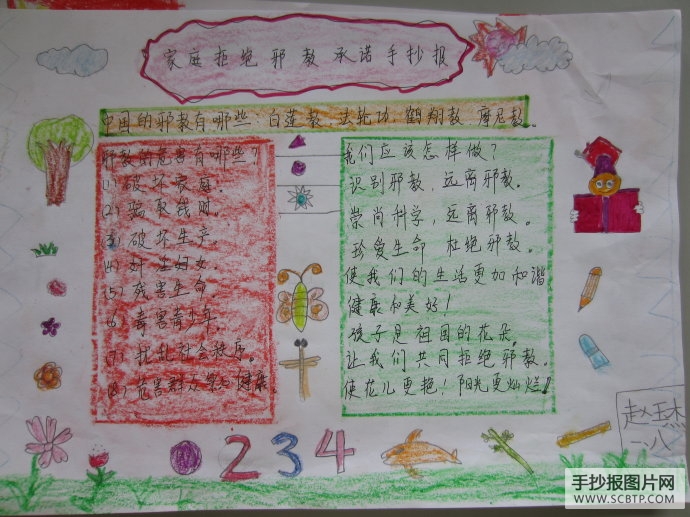 家庭拒绝邪教承诺手抄报
中国的邪教有哪些：白莲教 法轮功 鹤翔教 摩尼教。
邪教的危害有哪些？
(1) 破坏家庭。
(2) 骗取钱财。
(3) 破坏生产。
(4) 奸淫妇女。
(5) 残害生命。
(6) 毒害青少年。
(7) 扰乱社会秩序。
(8) 危害群众身心健康。
我们应该怎样做？
识别邪教，远离邪教。
崇尚科学，远离邪教。
珍爱生命 杜绝邪教。
使我们的生活更加和谐
健康和美好！
孩子是祖国的花朵。
让我们共同拒绝邪教。
使花儿更艳！阳光更灿烂！
234
一.八
手抄报图片网
WWW.SCBTP.COM